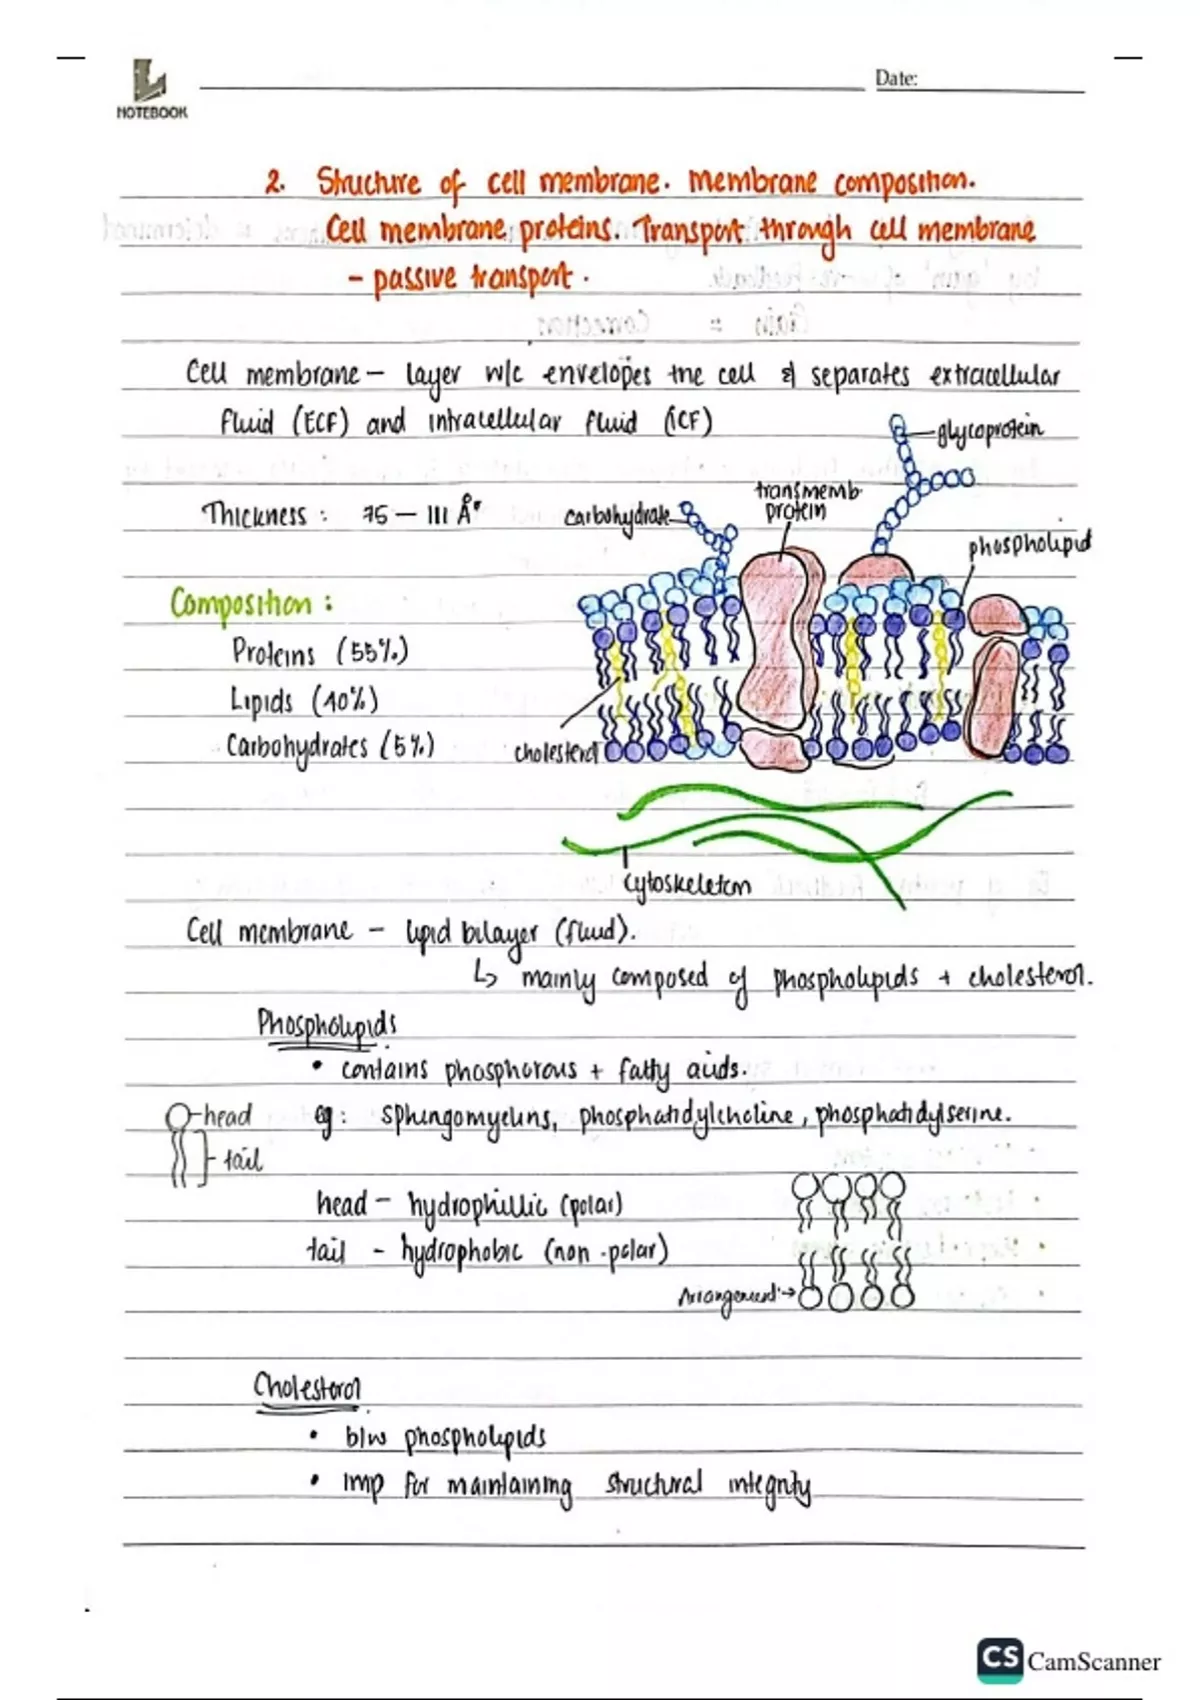 NOTEBOOK
Date:
2. Structure of cell membrane. Membrane composition.
Cell membrane proteins. Transport through cell membrane
- passive transport.
Cell membrane - layer w/c envelopes the cell & separates extracellular
fluid (ECF) and intracellular fluid (ICF)
glycoprotein
transmemb.
protein
Thickness: 75 - 111 Å
carbohydrate
phospholipid
Composition:
Proteins (55%)
Lipids (40%)
Carbohydrates (5%)
cholesterol
cytoskeleton
Cell membrane - lipid bilayer (fluid).
↳ mainly composed of phospholipids + cholesterol.
Phospholipids
• contains phosphorous + fatty acids.
head
eg: sphingomyelins, phosphatidylcholine, phosphatidylserine.
tail
head - hydrophillic (polar)
tail - hydrophobic (non-polar)
Arrangement →
Cholesterol
• b/w phospholipids
• imp for maintaining structural integrity
CS CamScanner